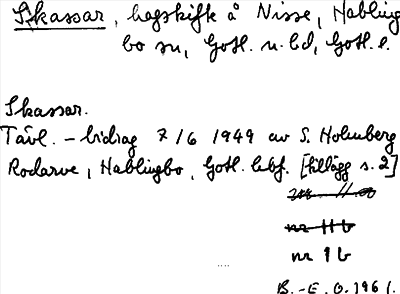 Skassar, hagskifte å Nisse, Habling
bo sn, Gotl. n. hd, Gotl. l.
Skassar.
Tävl.-bidrag 7/6 1949 av S. Holmberg
Rodarve, Hablingbo, Gotl. [tillägg s. 2]
nr 11 b
nr 1 b
B.-E. O. 1961.